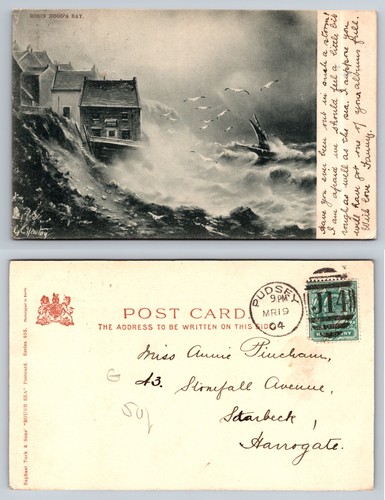 ROBIN HOOD'S BAY.
Have you ever been out in such a storm?
I am afraid we should feel a little bit
rough as well as the sea. I suppose you
will have got one of your albums full.
With love Fanny.
POST CARD.
THE ADDRESS TO BE WRITTEN ON THIS SIDE.
PUDSEY
9 PM
MR 19
04
Miss Annie Pincham,
43. Stonefall Avenue,
Starbeck,
Harrogate.
Raphael Tuck & Sons' "ROUGH SEA" Postcard. Series